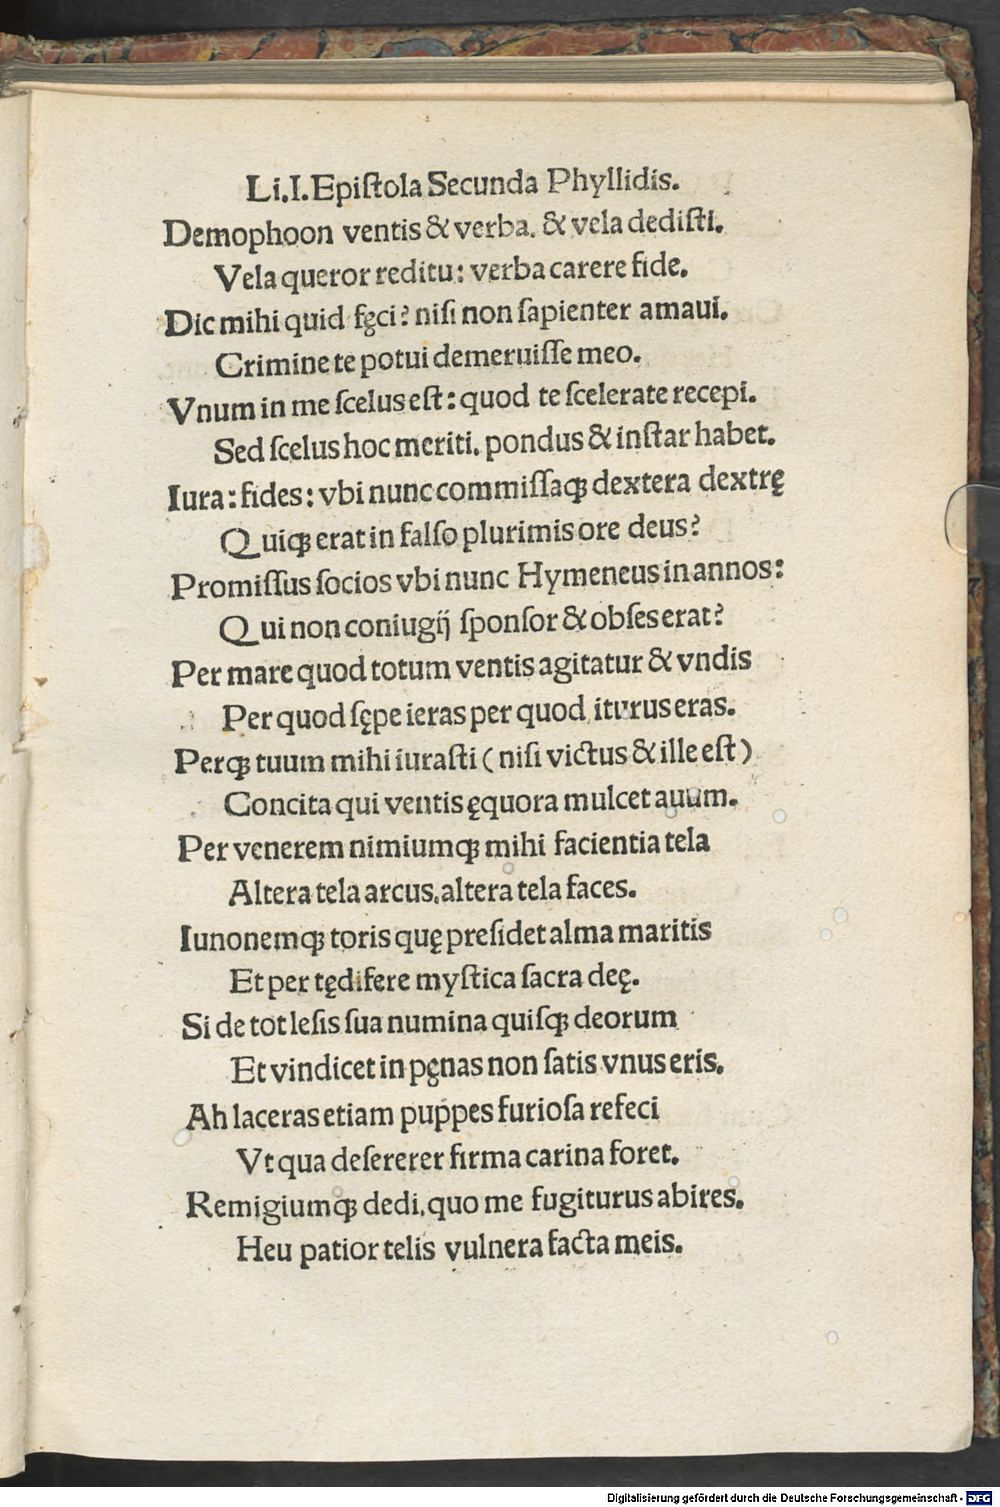 Li.I.Epiſtola Secunda Phyllidis.
Demophoon ventis & verba. & vela dediſti.
Vela queror reditu: verba carere fide.
Dic mihi quid fęci? niſi non ſapienter amaui.
Crimine te potui demeruiſſe meo.
Vnum in me ſcelus eſt: quod te ſcelerate recepi.
Sed ſcelus hoc meriti. pondus & inſtar habet.
Iura: fides: vbi nunc commiſſaqꝫ dextera dextrę
Quiqꝫ erat in falſo plurimis ore deus?
Promiſſus ſocios vbi nunc Hymeneus in annos:
Qui non coniugij ſponſor & obſes erat?
Per mare quod totum ventis agitatur & vndis
Per quod ſępe ieras per quod iturus eras.
Perqꝫ tuum mihi iuraſti (niſi victus & ille eſt)
Concita qui ventis ęquora mulcet auum.
Per venerem nimiumqꝫ mihi facientia tela
Altera tela arcus. altera tela faces.
Iunonemqꝫ toris quę preſidet alma maritis
Et per tędifere myſtica ſacra deę.
Si de tot leſis ſua numina quiſqꝫ deorum
Et vindicet in pęnas non ſatis vnus eris.
Ah laceras etiam puppes furioſa refeci
Vt qua deſererer firma carina foret.
Remigiumqꝫ dedi. quo me fugiturus abires.
Heu patior telis vulnera facta meis.
Digitalisierung gefördert durch die Deutsche Forschungsgemeinschaft - DFG